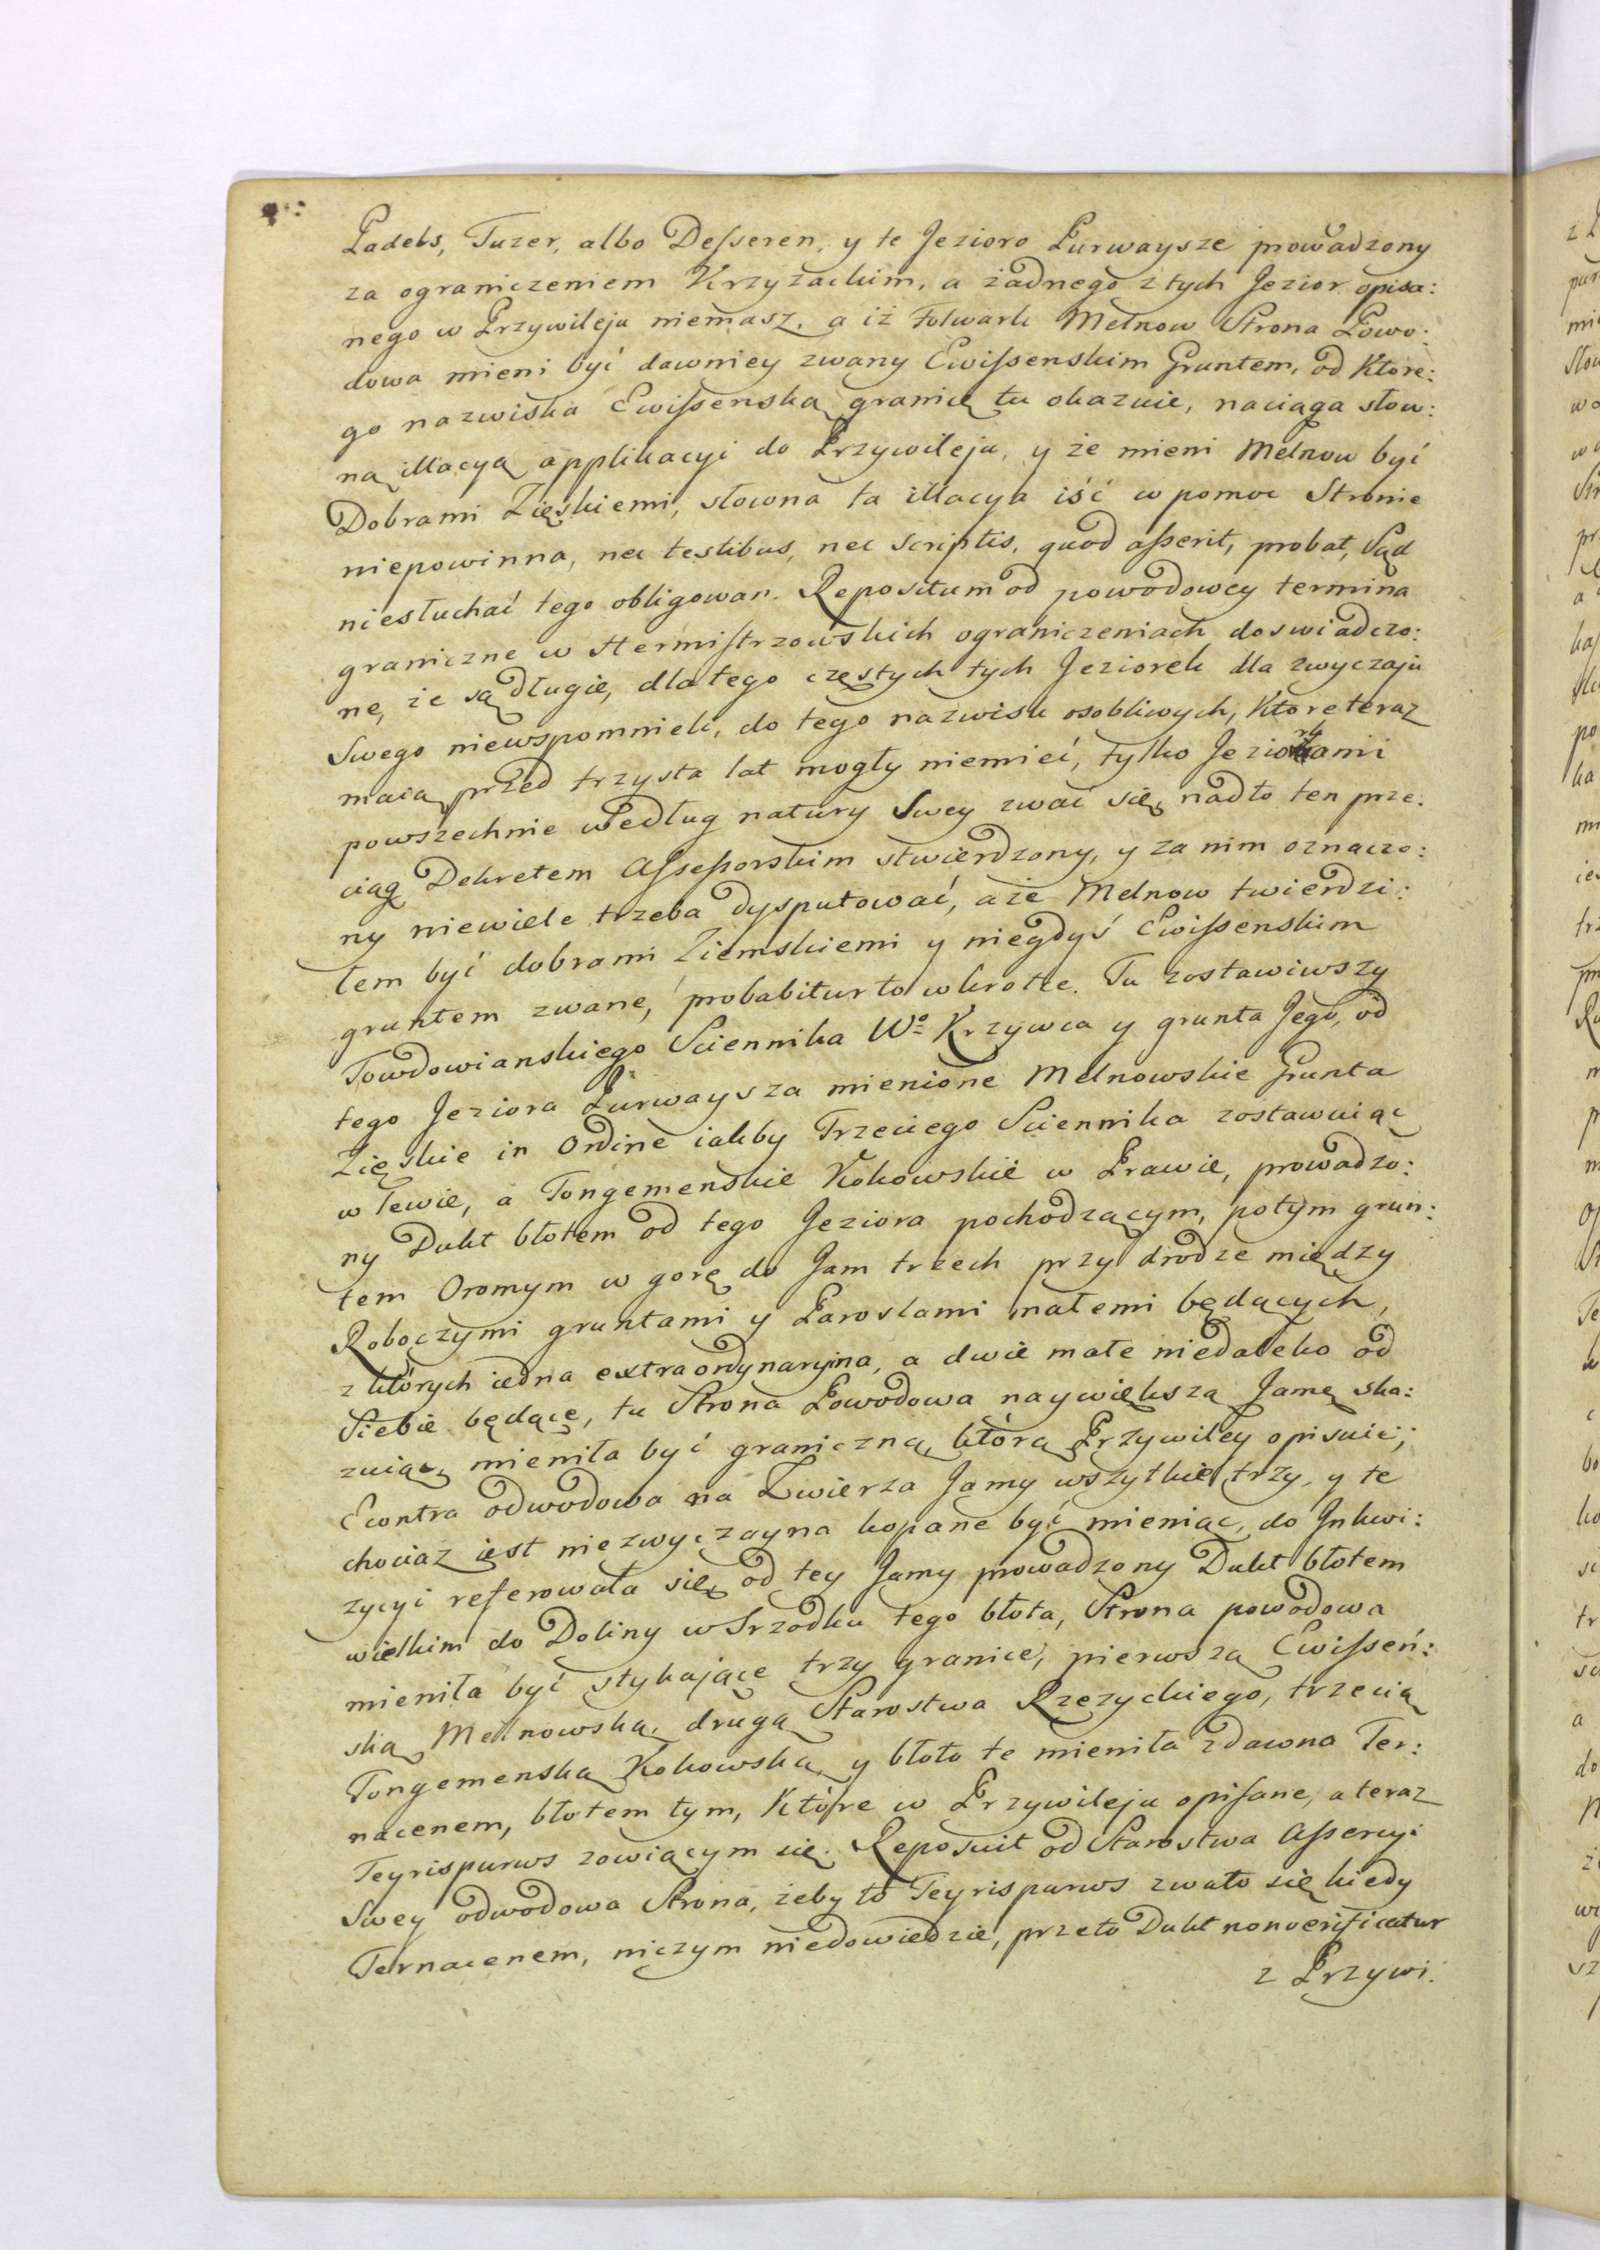 Padels, Tuzer, albo Desseren, y te Jezioro Purwaysze prowadzony
za ograniczeniem Krzyżackim, a żadnego z tych Jezior opisa:
nego w Przywileju niemasz, a iż Folwark Melnow Strona Powo:
dowa mieni być dawniey zwany Ewissenskim Gruntem, od Ktore:
go nazwiska Ewissenską granicę tu okazuie, naciąga słow:
ną illacyą applikacyi do Przywileju, y że mieni Melnow być
Dobrami Zięskiemi, słowna ta illacya iść w pomoc Stronie
niepowinna, nec testibus, nec scriptis, quod asserit, probat, Sąd
niesłuchać tego obligowan. Repositum od powodowey termina
graniczne w Hermistrzowskich ograniczeniach doswiadczo:
ne, że są długie, dlatego częstych tych Jeziorek dla zwyczaju
Swego niewspomnieli, do tego nazwisk osobliwych, Ktore teraz
maią, przed trzysta lat mogły niemieć, tylko Jeziorkami
powszechnie według natury Swey zwać się, nadto ten prze:
ciąg Dekretem Assessorskim stwierdzony, y za nim oznaczo:
ny niewiele trzeba dysputować, a że Melnow twierdzi:
łem być dobrami Ziemskiemi y niegdyś Ewissenskim
gruntem zwane, probabitur to wkrotce. Tu zostawiwszy
Towdowianskiego Sciennika Wo Krzywca y grunta Jego, od
tego Jeziora Purwaysza mienione Melnowskie Grunta
Zięskie in Ordine iakby Trzeciego Sciennika zostawuiąc
w lewie, a Tongemenskie Kokowskie w Prawie, prowadzo:
ny Dukt błotem od tego Jeziora pochodzącym, potym grun:
tem Oromym w gorę do Jam trzech przy drodze między
Roboczymi gruntami y Paroslami małemi będących,
z których iedna extraordynaryina, a dwie małe niedaleko od
Siebie będące, tu Strona Powodowa naywiększą Jamę ska:
zuiąc mieniła być graniczną, którą Przywiley opisuie;
Econtra odwodowa na Zwierza Jamy wszytkie trzy, y te
chociaz iest niezwyczayna kopane być mieniąc, do Inkwi:
zycyi referowała się, od tey Jamy prowadzony Dukt błotem
wielkim do Doliny w Srzodku tego błota, Strona powodowa
mieniła być stykające trzy granice, pierwszą Ewisseń:
ską, Melnowską, drugą Starostwa Rzezyckiego, trzecią
Tongemenską Kokowską, y błoto te mieniła zdawna Ter:
nacenem, błotem tym, Które w Przywileju opisane, a teraz
Teyrispurws zowiącym się. Reposuit od Starostwa Assercyi
Swey odwodowa Strona, żeby to Teyrispurws zwało się kiedy
Ternacenem, niczym niedowiedzie, przeto Dukt nonverificatur
z Przywi: